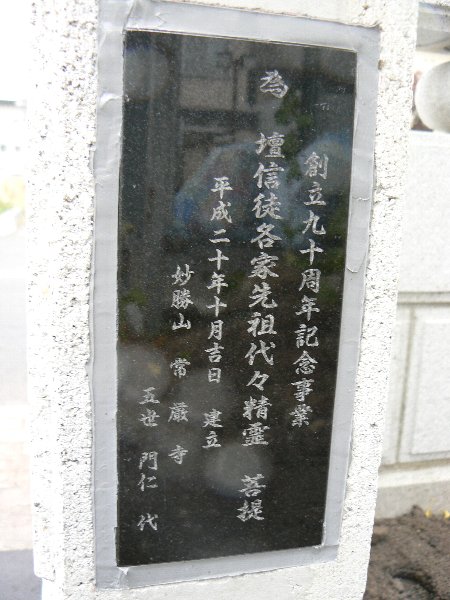 創立九十周年記念事業
為 壇信徒各家先祖代々精霊 菩提
平成二十年十月吉日 建立
妙勝山 常厳寺
五世 門仁 代